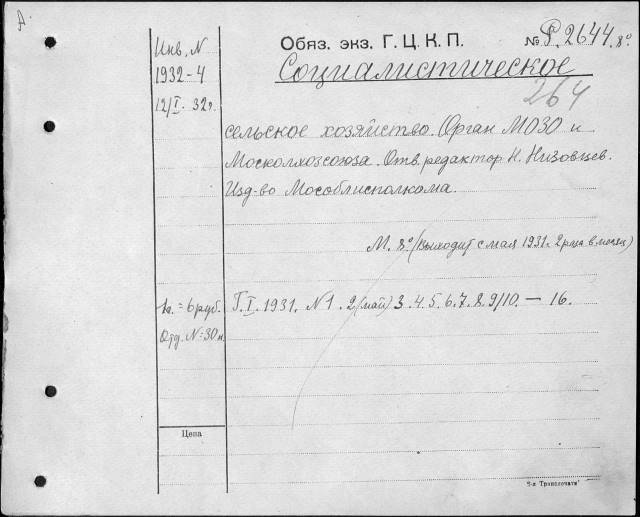 А
Инв. N
1932-4
12/I. 32г.
Обяз. экз. Г. Ц. К. П.
№ Р. 2644. 8°
Социалистическое
264
сельское хозяйство. (Орган МОЗО и
Москолхозсоюза. Отв. редактор Н. Низовцев.
Изд-во Мособлисполкома.
М. 8° (выходит с мая 1931г. 2 раза в месяц)
1г. = 6 руб.
Отд. N = 30 к.
Г. I. 1931. N 1. 2 (май) 3. 4. 5. 6. 7. 8. 9/10. — 16.
Цена